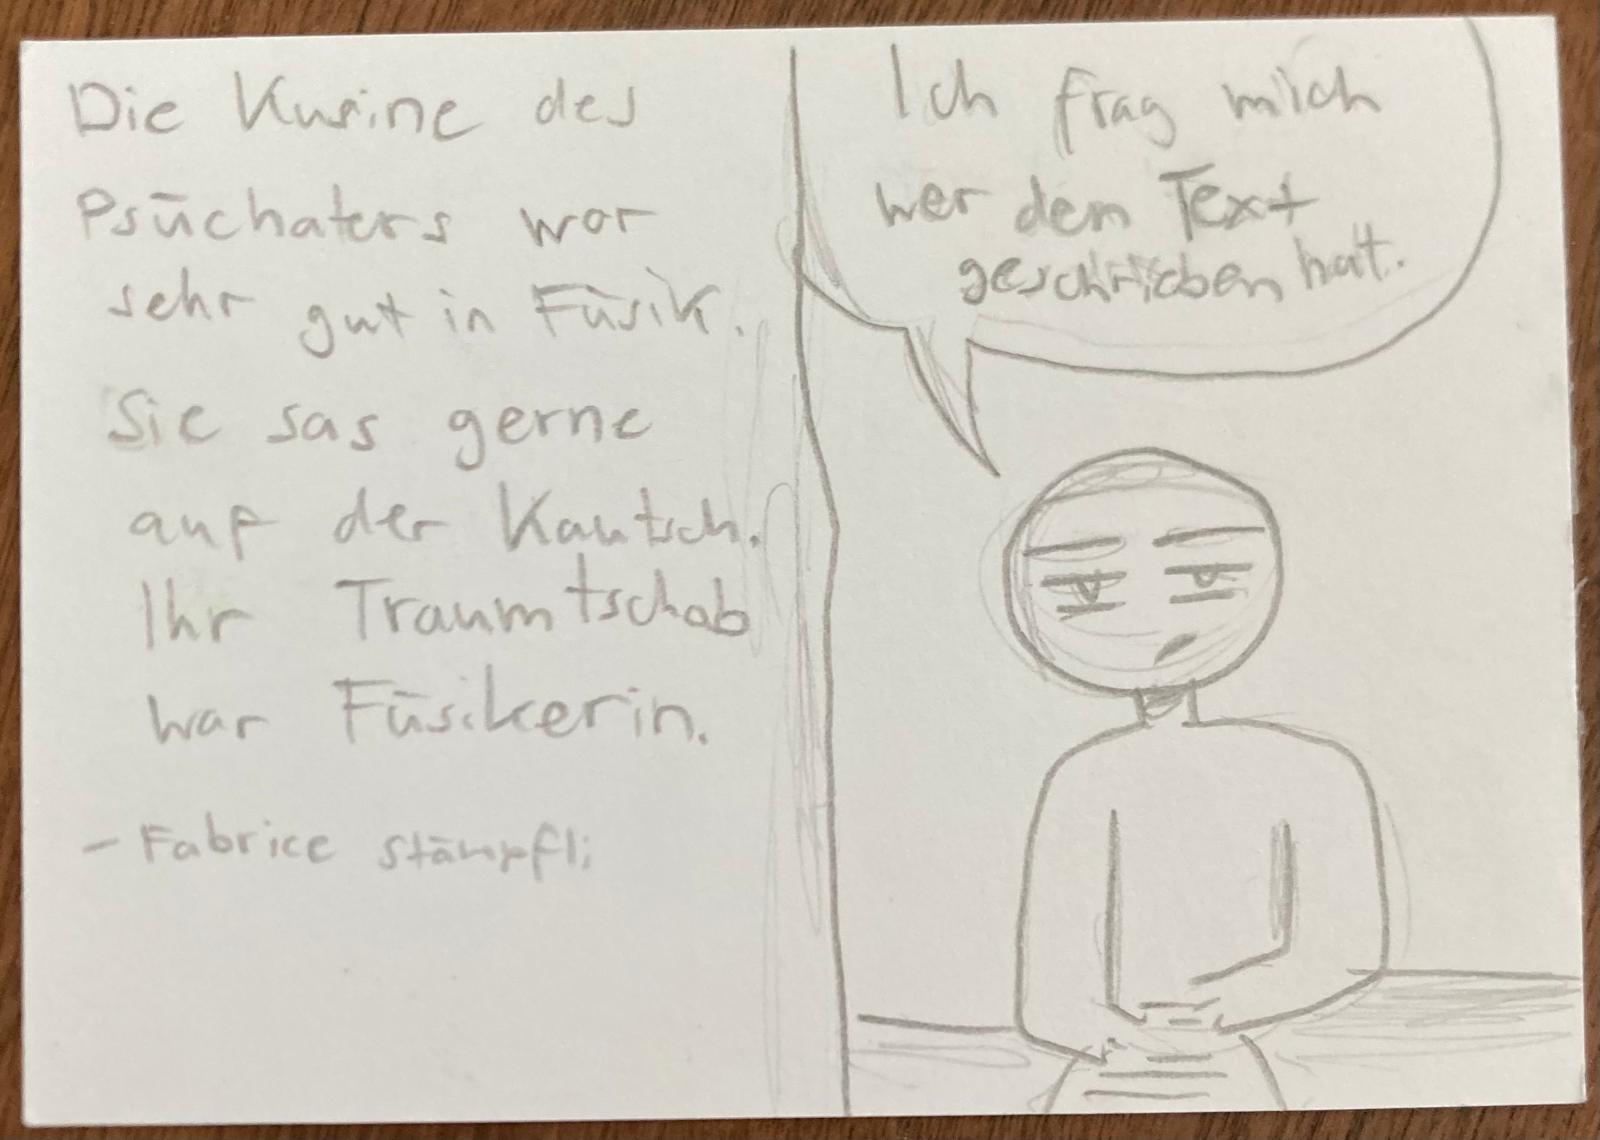 Die Kusine des
Psüchaters war
sehr gut in Füsik.
Sie sas gerne
auf der Kautsch.
Ihr Traumtschob
war Füsikerin.
- Fabrice Stämpfli
Ich frag mich
wer den Text
geschrieben hat.